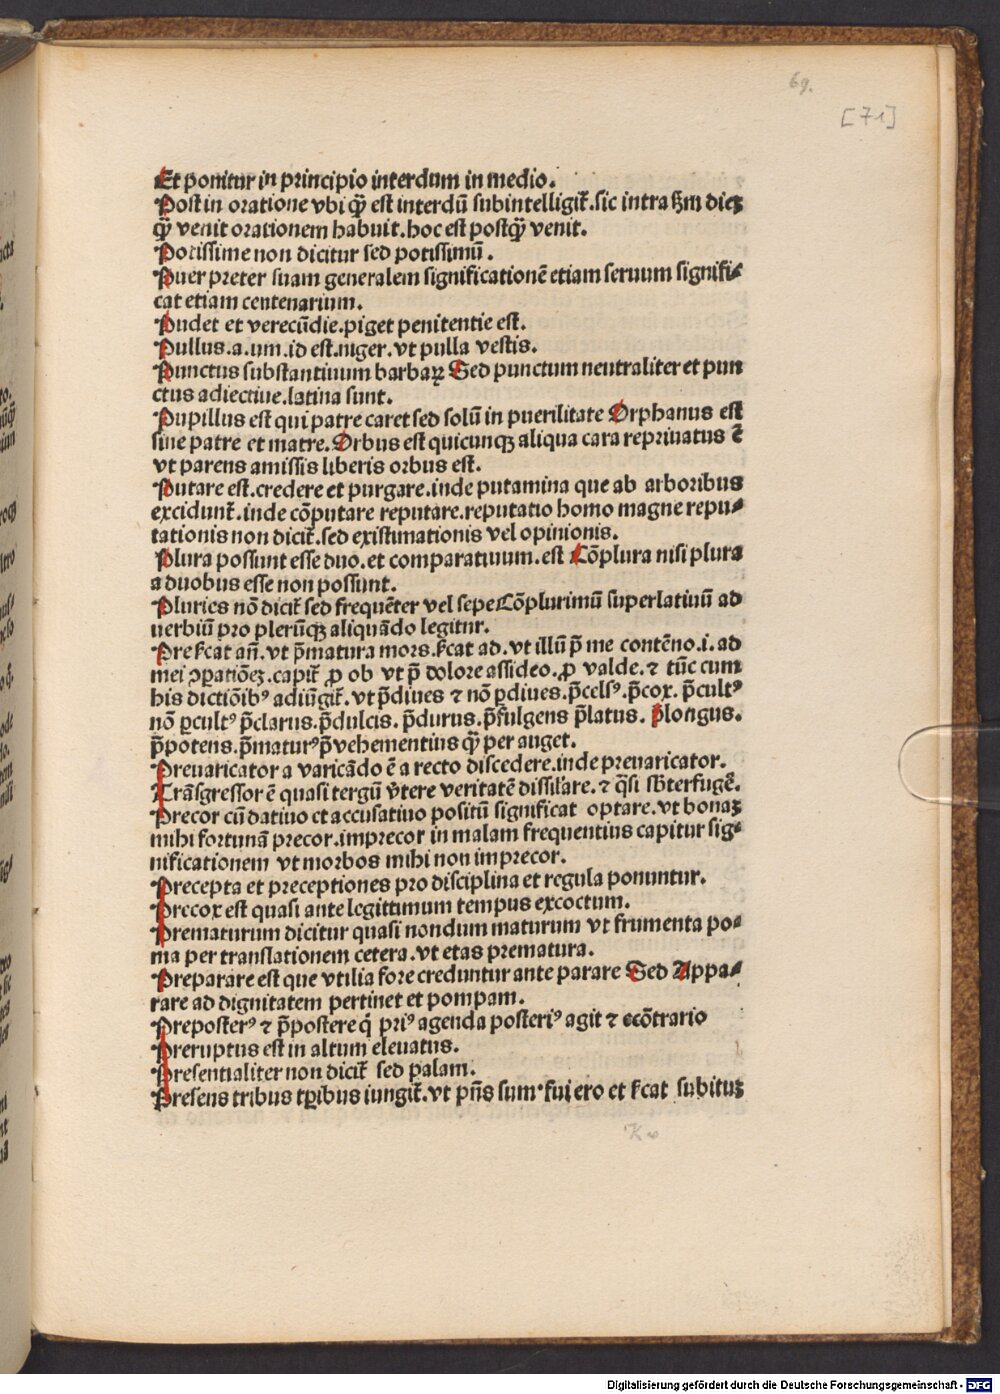 69.
[71]
Et ponitur in principio interdum in medio.
Post in oratione vbi qꝫ̄ est interdū subintelligit̄. sic intra ẜm dieꝫ
qꝫ̄ venit orationem habuit. hoc est postqꝫ̄ venit.
Potissime non dicitur sed potissimū.
Puer preter suam generalem significationē etiam seruum signifi⸗
cat etiam centenarium.
Pudet et verecūdie. piget penitentie est.
Pullus. a. um. id est. niger. vt pulla vestis.
Punctus substantiuum barbaꝝ Sed punctum neutraliter et pun
ctus adiectiue. latina sunt.
Pupillus est qui patre caret sed solū in puerilitate Orphanus est
sine patre et matre. Orbus est quicunqꝫ aliqua cara repriuatus ē
vt parens amissis liberis orbus est.
Putare est. credere et purgare. inde putamina que ab arboribus
excidunt̄. inde cōputare reputare. reputatio homo magne repu⸗
tationis non dicit̄. sed existimationis vel opinionis.
Plura possunt esse duo. et comparatiuum. est Cōplura nisi plura
a duobus esse non possunt.
Pluries nō dicit̄ sed frequēter vel sepe Cōplurimū superlatiuū ad
uerbiū pro plerūqꝫ aliquādo legitur.
Pre ẜcat an̄. vt p̄matura mors. ẜcat ad. vt illū p̄ me contēno. i. ad
mei ꝯpatiōeꝫ. capit̄ ꝓ ob vt p̄ dolore assideo. ꝓ valde. ⁊ tūc cum
his dictiōibꝰ adiūgit̄. vt p̄diues ⁊ nō ꝑdiues. p̄celsꝰ. p̄cox. p̄cultꝰ
nō ꝑcultꝰ p̄clarus. p̄dulcis. p̄durus. p̄fulgens p̄latus. p̄longus.
p̄potens. p̄maturꝰ p̄vehementius qꝫ̄ per auget.
Preuaricator a varicādo ē a recto discedere. inde preuaricator.
Trāsgressor ē quasi tergū v̄tere veritatē dissil̄are. ⁊ q̄si sb̄terfugē.
Precor cū datiuo et accusatiuo positū significat optare. vt bonaꝫ
mihi fortunā precor. imprecor in malam frequentius capitur sig⸗
nificationem vt morbos mihi non imprecor.
Precepta et preceptiones pro disciplina et regula ponuntur.
Precox est quasi ante legittimum tempus excoctum.
Prematurum dicitur quasi nondum maturum vt frumenta po⸗
ma per translationem cetera. vt etas prematura.
Preparare est que vtilia fore creduntur ante parare Sed Appa⸗
rare ad dignitatem pertinet et pompam.
Preposterꝰ ⁊ p̄postere q̇ priꝰ agenda posteriꝰ agit ⁊ ecōtrario
Preruptus est in altum eleuatus.
Presentialiter non dicit̄ sed palam.
Presens tribus tꝑibus iungit̄. vt pn̄s sum. fui ero et ẜcat subituꝫ
Digitalisierung gefördert durch die Deutsche Forschungsgemeinschaft - DFG